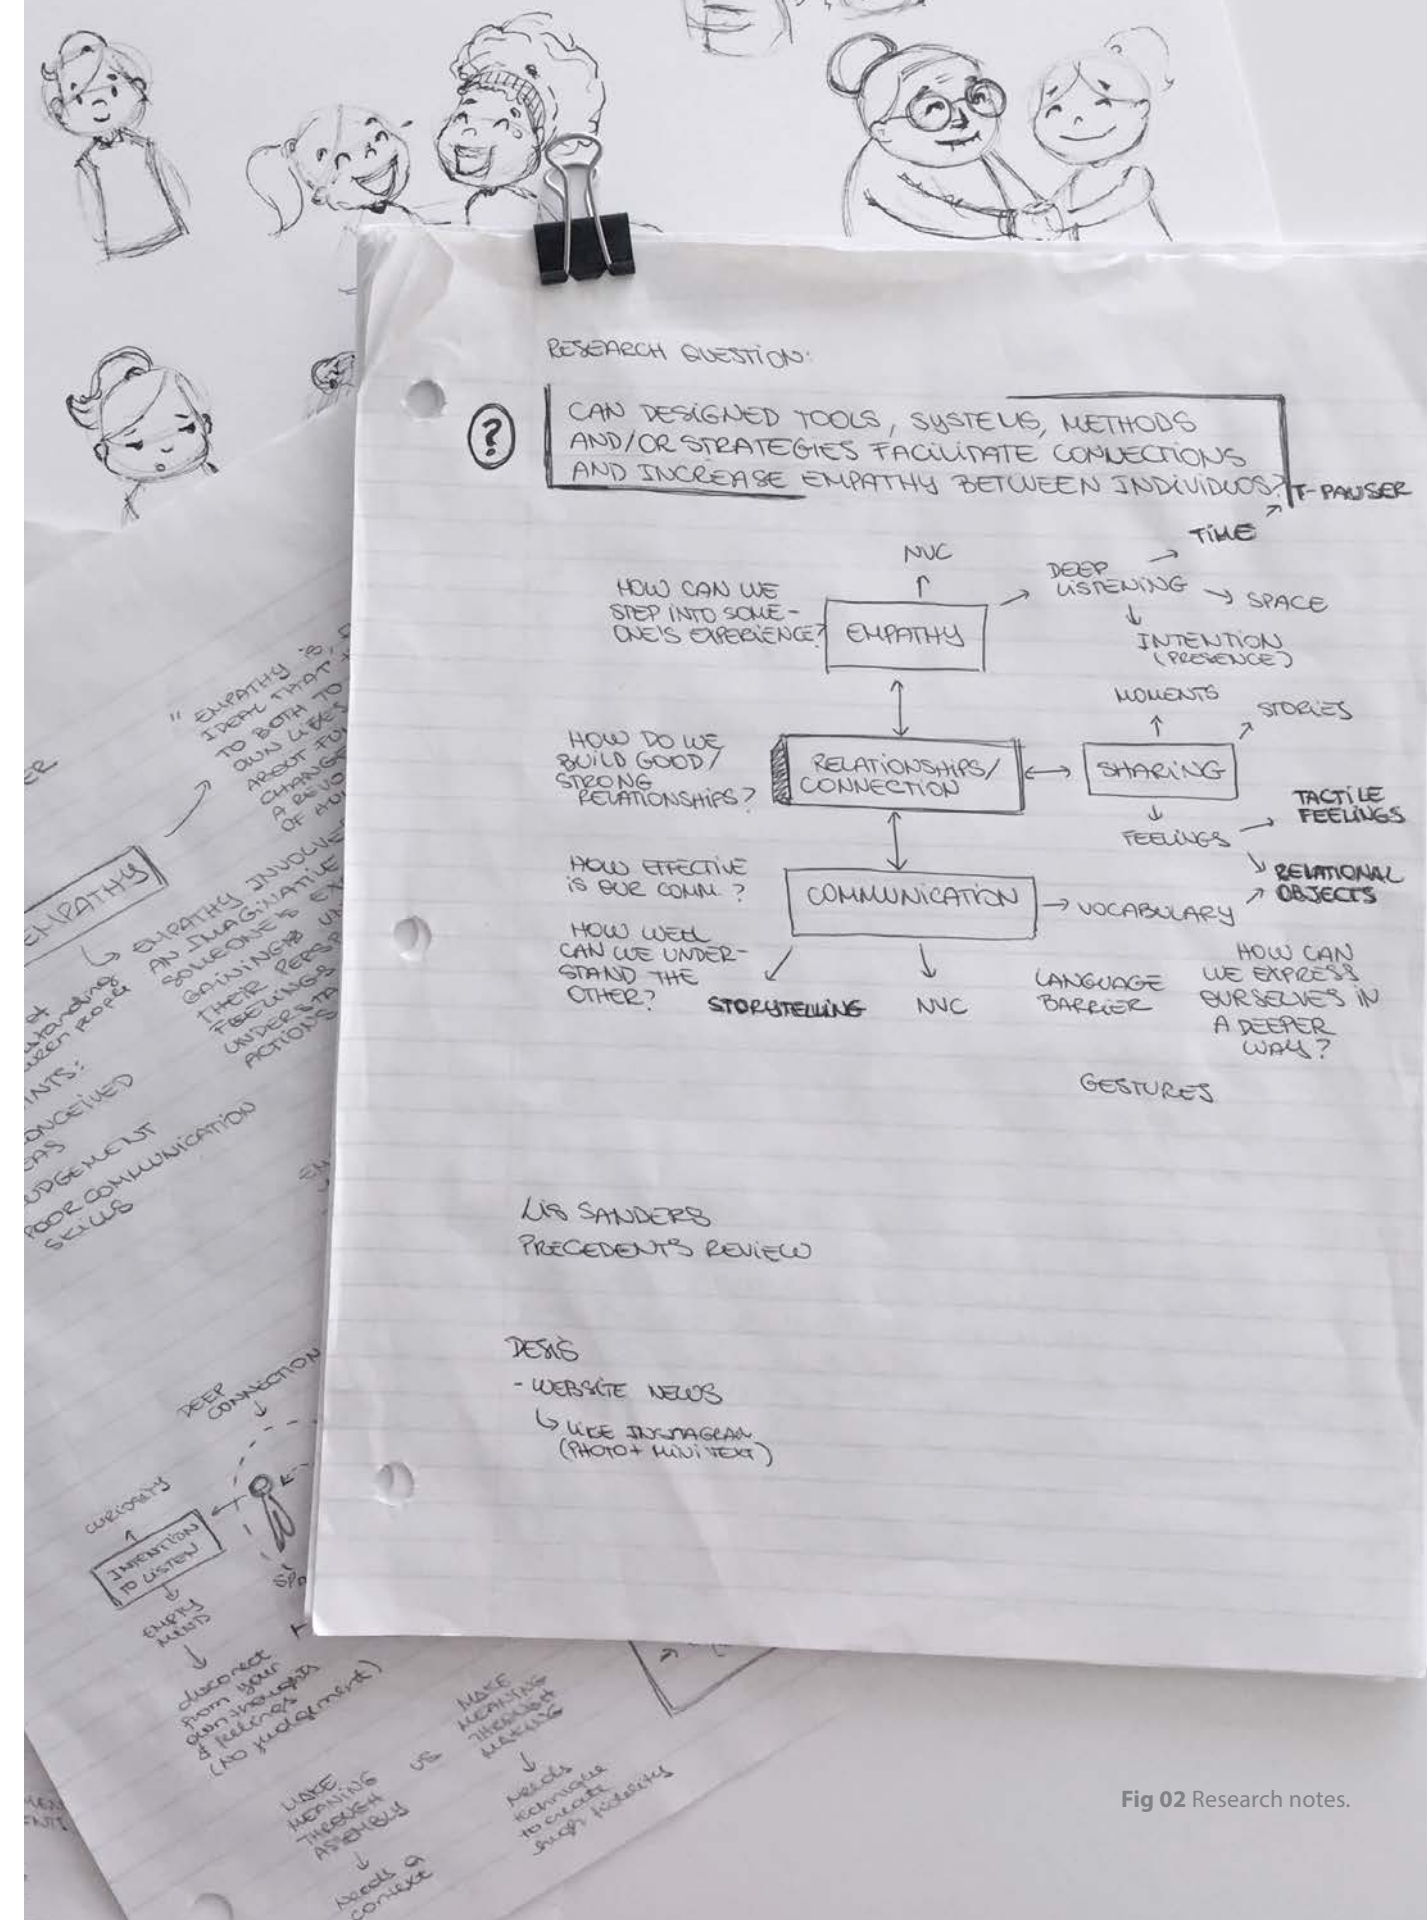 RESEARCH QUESTION:
?
CAN DESIGNED TOOLS, SYSTEMS, METHODS
AND/OR STRATEGIES FACILITATE CONNECTIONS
AND INCREASE EMPATHY BETWEEN INDIVIDUOS?
T-PAUSER
TIME
NVC
DEEP
LISTENING
SPACE
INTENTION
(PRESENCE)
HOW CAN WE
STEP INTO SOME-
ONE'S EXPERIENCE?
EMPATHY
MOMENTS
STORIES
HOW DO WE
BUILD GOOD/
STRONG
RELATIONSHIPS?
RELATIONSHIPS/
CONNECTION
SHARING
FEELINGS
TACTILE
FEELINGS
RELATIONAL
OBJECTS
HOW EFFECTIVE
IS OUR COMM.?
COMMUNICATION
VOCABULARY
HOW WELL
CAN WE UNDER-
STAND THE
OTHER?
STORYTELLING
NVC
LANGUAGE
BARRIER
HOW CAN
WE EXPRESS
OURSELVES IN
A DEEPER
WAY?
GESTURES
LIS SANDERS
PRECEDENTS REVIEW
DESIS
- WEBSITE NEWS
LIKE INSTAGRAM
(PHOTO + MINI TEXT)
" EMPATHY IS,
IDEAL THAT
TO BOTH TO
OWN LIVES
ABOUT
CHANGE
OF
EMPATHY
EMPATHY INVOLVE
AN IMAGINATIVE
SOMEONE'S
GAINING
THEIR
FEELINGS
ACTIONS
POOR COMMUNICATION
SKILLS
DEEP
CONNECTION
CURIOSITY
INTENTION
TO LISTEN
EMPTY
MIND
disconect
from your
own thoughts
& feelings
(NO judgement)
MAKE
MEANING
THROUGH
ASSEMBLY
needs a
context
VS
MAKE
MEANING
THROUGH
MAKING
needs
technique
to create
high fidelity
Fig 02 Research notes.